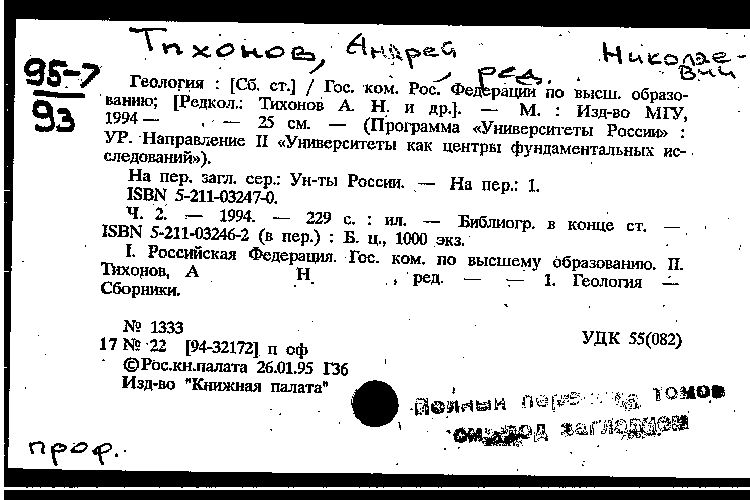 Тихонов, Андрей Николае-
вич, ред.
95-7
93
Геология : [Сб. ст.] / Гос. ком. Рос. Федерации по высш. образо-
ванию; [Редкол.: Тихонов А. Н. и др.]. — М. : Изд-во МГУ,
1994 — . — 25 см. — (Программа «Университеты России» :
УР. Направление II «Университеты как центры фундаментальных ис-
следований»).
На пер. загл. сер.: Ун-ты России. — На пер.: 1.
ISBN 5-211-03247-0.
Ч. 2. — 1994. — 229 с. : ил. — Библиогр. в конце ст. —
ISBN 5-211-03246-2 (в пер.) : Б. ц., 1000 экз.
I. Российская Федерация. Гос. ком. по высшему образованию. II.
Тихонов, А Н , ред. — — 1. Геология —
Сборники.
№ 1333
17 № 22 [94-32172] п оф
УДК 55(082)
©Рос.кн.палата 26.01.95 Г36
Изд-во "Книжная палата"
Полный перечень томов
см. под заглавием
проф.